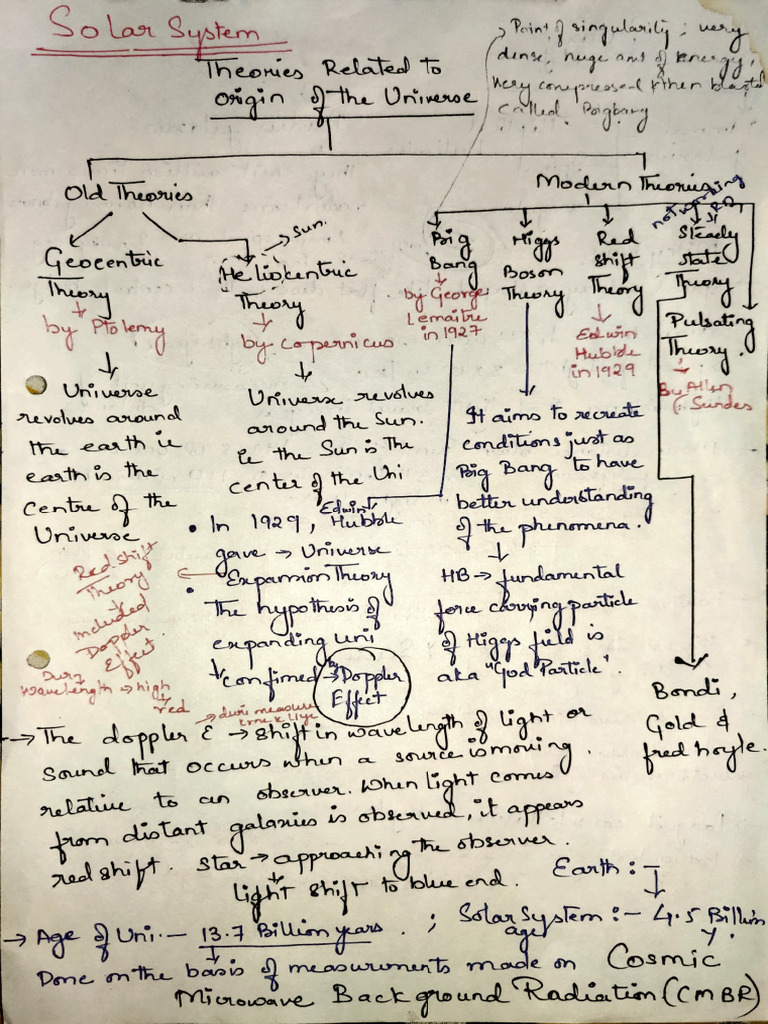 Solar System
Theories Related to
origin of the Universe
Point of singularity; very
dense, huge amt of energy,
very compressed & then blasted
called Bigbang
Old Theories
Modern Theories
Geocentric
Theory
by Ptolemy
Universe
revolves around
the earth ie
earth is the
centre of the
Universe
Sun.
Heliocentric
Theory
by Copernicus
Universe revolves
around the Sun.
ie the Sun is the
center of the Uni
Big
Bang
by George
Lemaitre
in 1927
Higgs
Boson
Theory
Red
Shift
Theory
Edwin
Hubble
in 1929
Steady
state
Theory
Pulsating
Theory.
By Allen
Sundes
It aims to recreate
conditions just as
Big Bang to have
better understanding
of the phenomena.
HB → fundamental
force carrying particle
of Higgs field is
aka "God Particle".
Bondi,
Gold &
fred hoyle.
Edwin
• In 1929, Hubble
gave → Universe
Expansion Theory
• The hypothesis of
expanding uni
confirmed → Doppler
Effect
Red shift
Theory
included
Doppler
Effect
wavelength → high
red
→ The doppler E → shift in wavelength of light or
sound that occurs when a source is moving
relative to an observer. When light comes
from distant galaxies is observed, it appears
red shift. Star → approaching the observer.
light shift to blue end.
Earth :-
→ Age of Uni. - 13.7 Billion years. ; Solar System :- 4.5 Billion
age
y.
Done on the basis of measurements made on Cosmic
Microwave Background Radiation (CMBR)